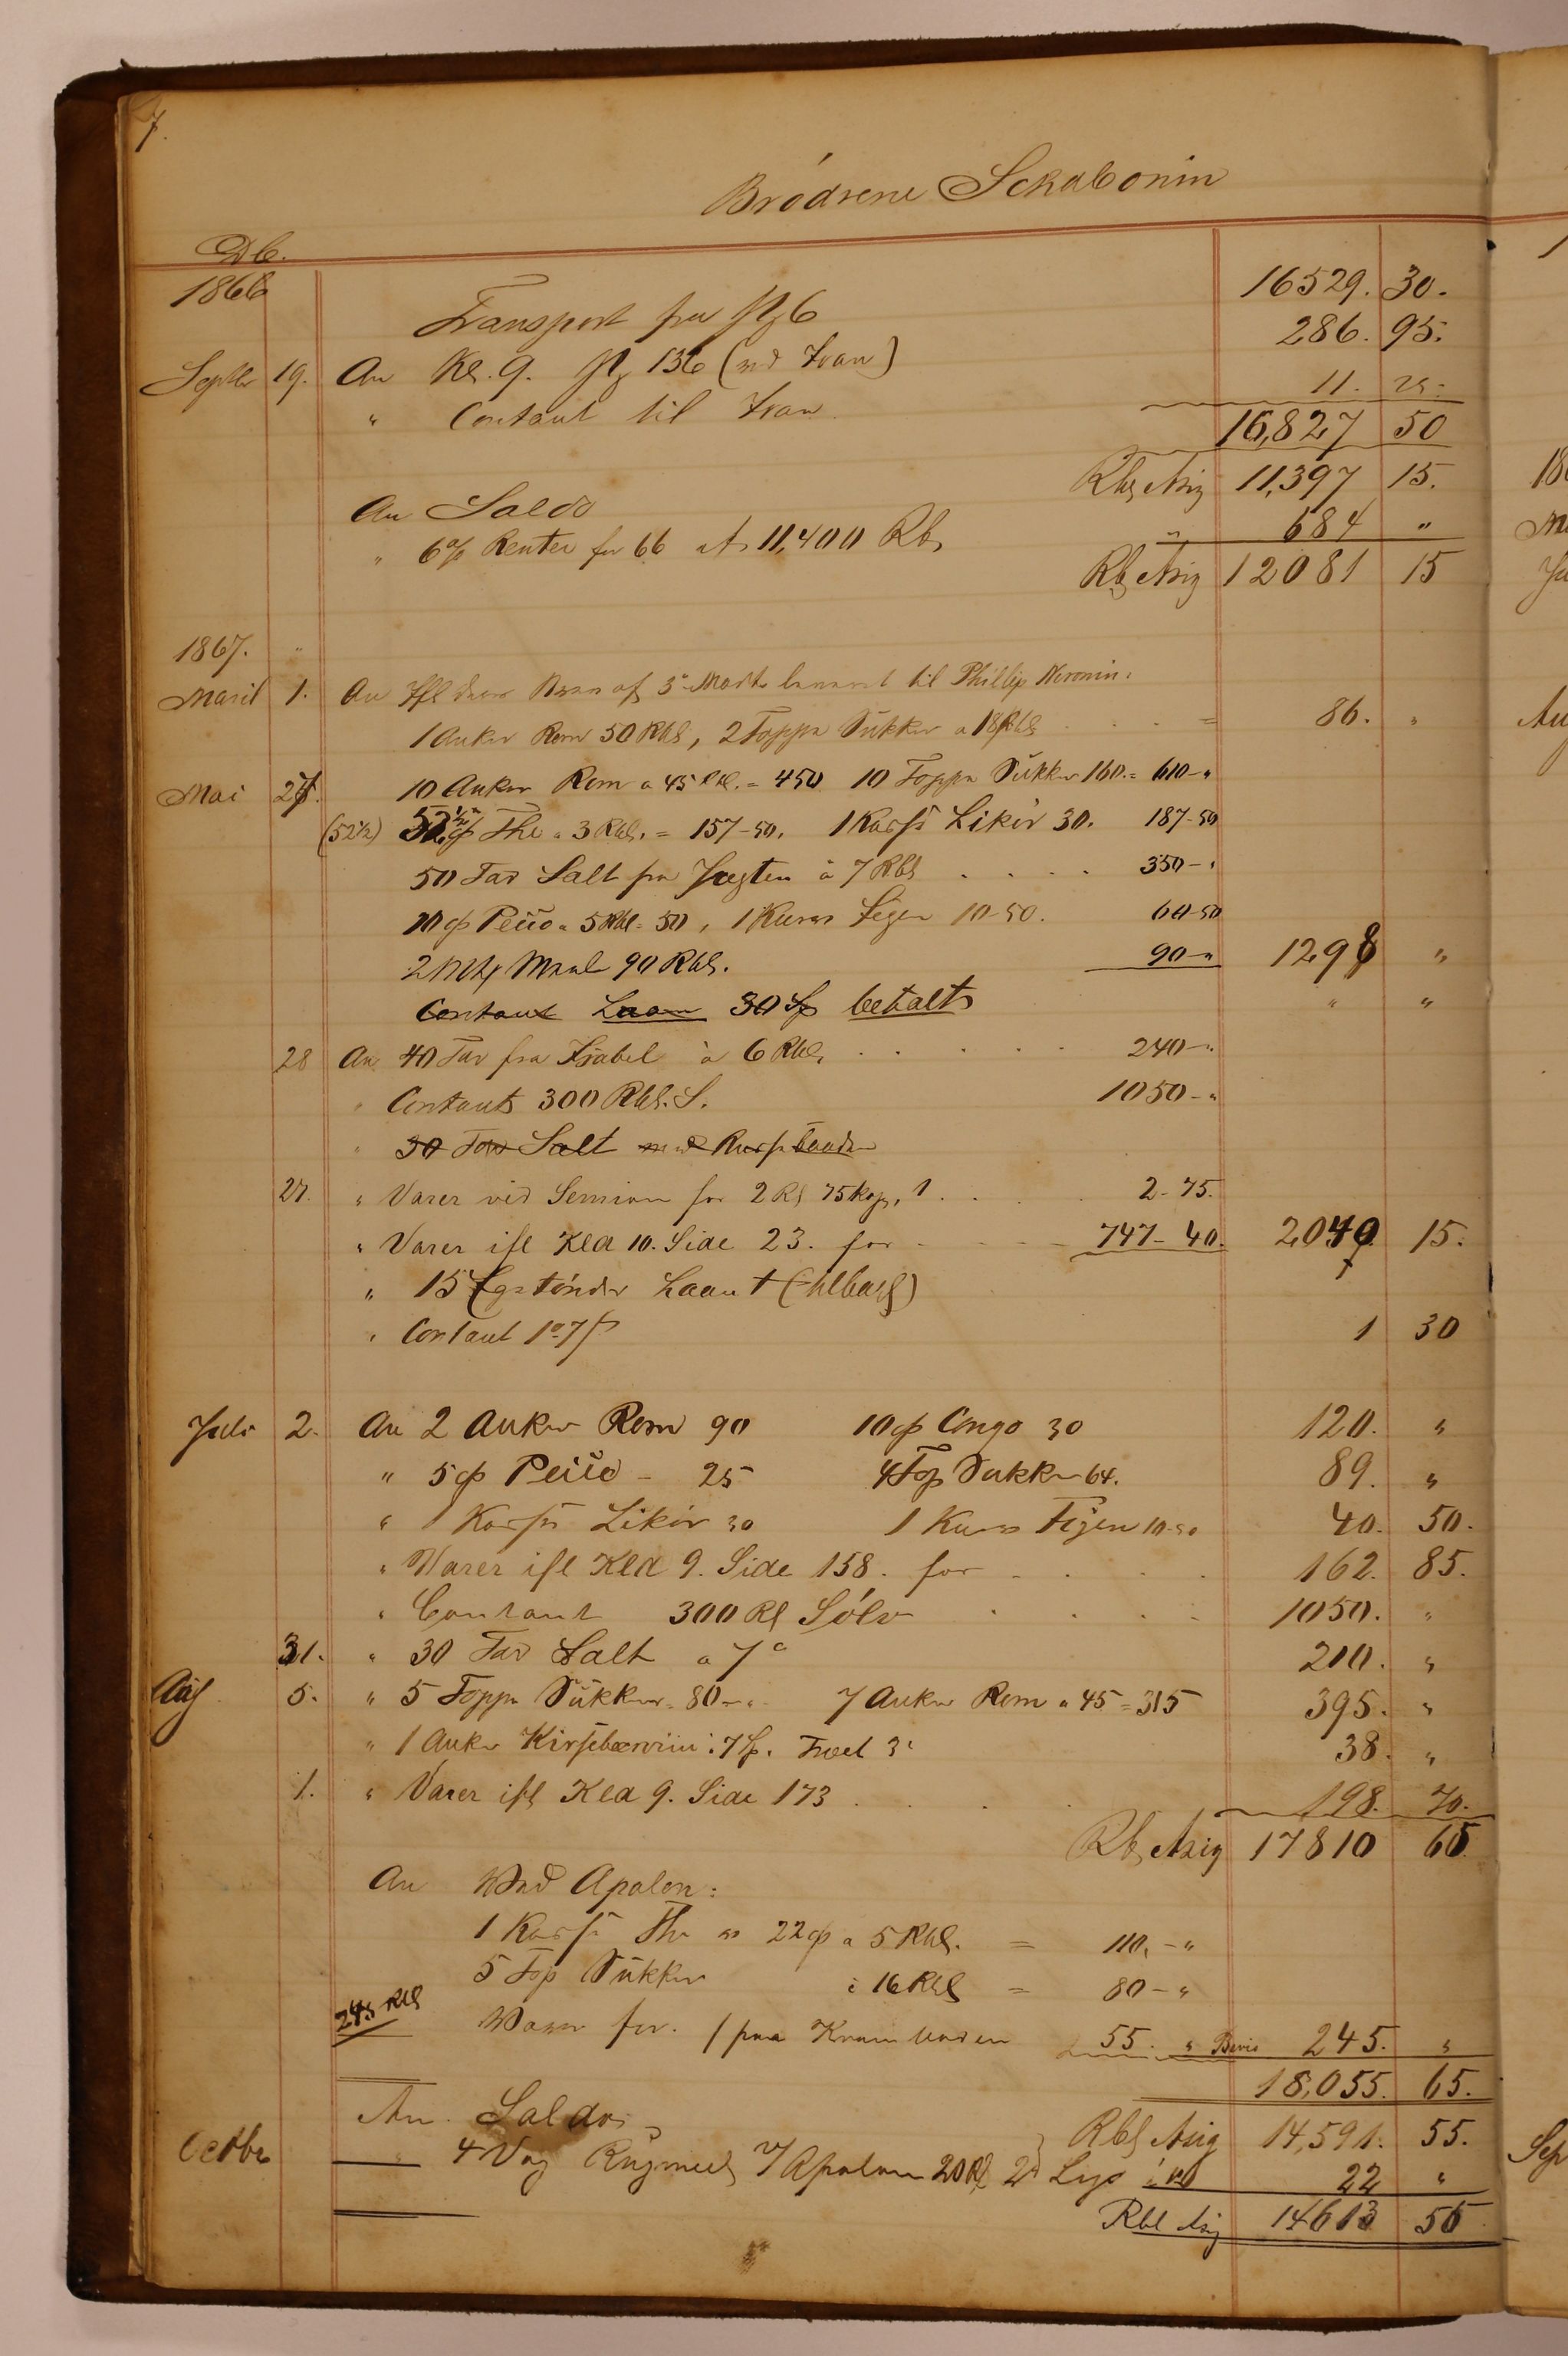 7.
Brødrene Schabonin
Db.
1866
Transport fra pag 6 16529. 30.
Septbr 19. An Kl. 9. pag 136 (ved Ivan) 286. 95.
" Contant til Ivan 11. 25.
16,827 50
An Saldo Rbl Asig 11,397 15.
" 6% Renter for 66 af 11,400 Rb, " 684 "
Rbl Asig 12081 15
1867. "
Marti 1. An Ifl deres af 3 Marts til Phillip Neronin:
1 Anker Rom 50 Rbl, 2 Toppe Sukker a 18 Rbl = 86. "
Mai 27. 10 Anker Rom a 45 Rbl. = 450 10 Toppe Sukker 160. = 610-"
(52 1/2) 52 1/2 ℔ The a 3 Rbl. = 157-50. 1 Kasse Likør 30. 187-50
50 Tdr Salt fra Jagten à 7 Rbl . . . . 350-"
10 ℔ Peiio a 5 Rbl = 50, 1 Kurv Figen 10-50. 60-50
2 Meel 90 Rbl. 90-" 1298 "
Contant Laan 30 Sp betalt " "
28 An 40 Tdr fra Isabel à 6 Rbl, . . . . . 240-"
" Contant 300 Rbl. S. 1050-"
" 30 Tdr Salt med
27. " Varer ved Semion for 2 Rl 75 kop, 1 . . . 2-75.
" Varer ifl Kla 10. Side 23. for 747-40. 2040 15.
" 15 Egetønder Laant
" Contant 1 1 30
Juli 2. An 2 Anker Rom 90 10 ℔ Congo 30 120. "
" 5 ℔ Peiio - 25 4 Top Sukker 64. 89. "
" 1 Kasse Likør 30 1 Kurv Figen 10-50 40. 50.
" Varer ifl Kla 9. Side 158. for . . . 162. 85.
" Contant 300 Rl Sølv . . . 1050. "
31. " 30 Tdr Salt a 7 210. "
Aug 5. " 5 Toppe Sukker = 80-" 7 Anker Rom a 45 = 315 395. "
" 1 Anker Kirsebærviin : 7 Sp. 38. "
1. " Varer ifl Kla 9. Side 173 . . . 198. 70.
Rbl Asig 17810 65
An Med Apolon:
1 Kasse The 22 ℔ a 5 Rbl. = 110,-"
5 Top Sukker à 16 Rbl = 80-"
245 Rbl Varer for. paa Kramboden 55. " 245. "
18,055. 65.
An. Saldo Rbl Asig 14,591. 55.
Octbr " 4 Vog Rugmeel Apolon 20 Rl 2 Lys 22 "
Rbl Asig 14613 55